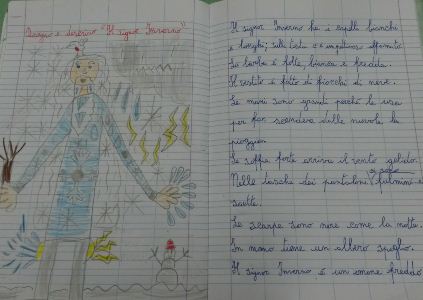 Disegno e descrivo "Il signor Inverno"
Il signor Inverno ha i capelli bianchi
e lunghi; sulla testa c'è un
La barba è folta, bianca e fredda.
Il vestito è fatto di fiocchi di neve.
Le mani sono grandi perché le usa
per far scendere dalle nuvole la
pioggia.
Se soffia forte arriva il vento gelido.
Nelle tasche dei pantaloni fulmini e
saette.
Le scarpe sono nere come la notte.
In mano tiene un albero spoglio.
Il signor Inverno è un signore freddo